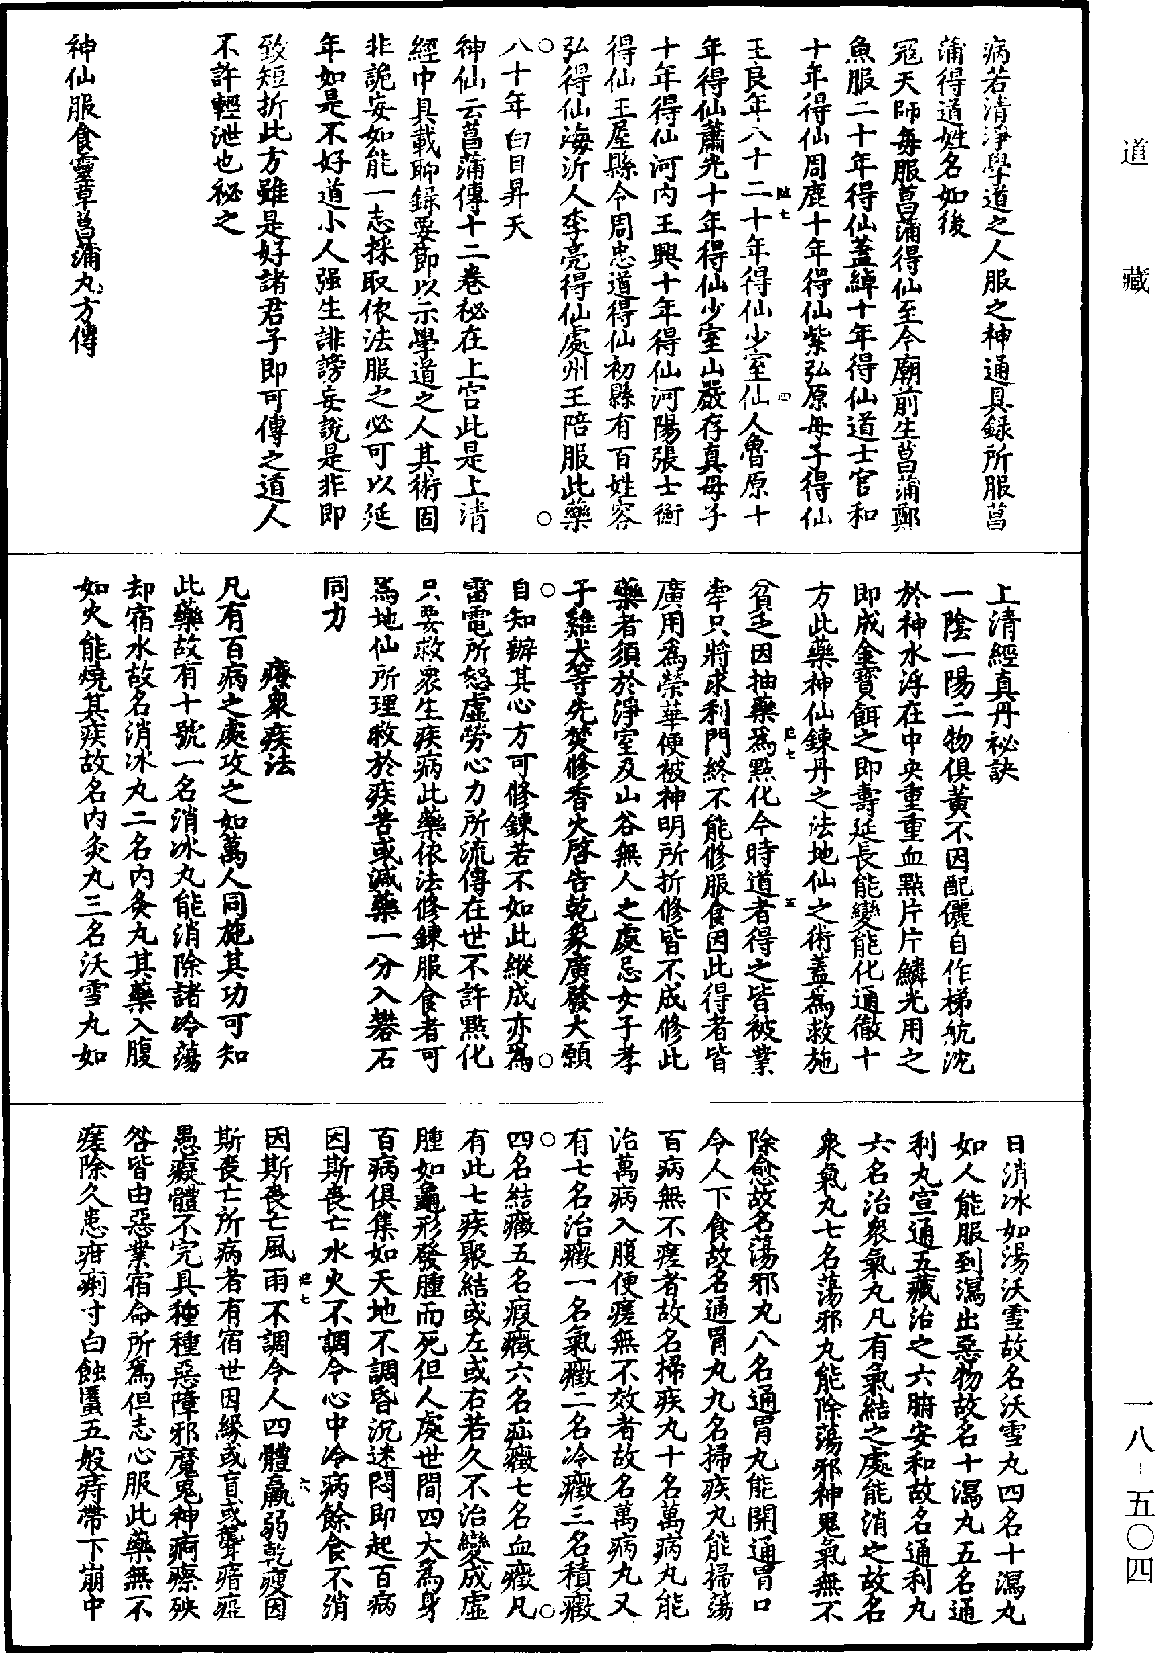 道藏
一八-五〇四
病若清淨學道之人服之神通具録所服菖
蒲得道姓名如後
寇天師每服菖蒲得仙至今廟前生菖蒲鄭
魚服二十年得仙蓋綽十年得仙道士官和
十年得仙周鹿十年得仙紫弘原母子得仙
王良年八十二十年得仙少室仙人魯原十
年得仙蕭光十年得仙少室山嚴存真母子
十年得仙河内王興十年得仙河陽張士衡
得仙王屋縣令周忠道得仙初縣有百姓容
弘得仙海沂人李亮得仙處州王陪服此藥
八十年白日昇天
神仙云菖蒲傳十二卷秘在上宫此是上清
經中具載聊録要節以示學道之人其術固
非詭妄如能一志採取依法服之必可以延
年如是不好道小人强生誹謗妄説是非即
致短折此方雖是好諸君子即可傳之道人
不許輕泄也祕之
神仙服食靈草菖蒲丸方傳
上清經真丹祕訣
一陰一陽二物俱黃不因配儷自作梯航沈
於神水浮在中央重重血點片片鱗光用之
即成金寶餌之即壽延長能變能化通徹十
方此藥神仙鍊丹之法地仙之術蓋爲救施
貧乏因抽藥爲點化今時道者得之皆被業
牽只將求利門終不能修服食因此得者皆
廣用爲榮華便被神明所折修皆不成修此
藥者須於淨室及山谷無人之處忌女子孝
子雞犬等先焚修香火啓告乾象廣發大願
自知辦其心方可修鍊若不如此縱成亦爲
雷電所怒虚勞心力所流傳在世不許點化
只要救衆生疾病此藥依法修鍊服食者可
爲地仙所理救於疾苦或減藥一分入礬石
同力
療衆疾法
凡有百病之處攻之如萬人同施其功可知
此藥故有十號一名消冰丸能消除諸冷蕩
却宿水故名消冰丸二名内灸丸其藥入腹
如火能燒其疾故名内灸丸三名沃雪丸如
日消冰如湯沃雪故名沃雪丸四名十瀉丸
如人能服到瀉出惡物故名十瀉丸五名通
利丸宣通五藏治之六腑安和故名通利丸
六名治衆氣丸凡有氣結之處能消之故名
衆氣丸七名蕩邪丸能除蕩邪神鬼氣無不
除愈故名蕩邪丸八名通胃丸能開通胃口
令人下食故名通胃丸九名掃疾丸能掃蕩
百病無不瘥者故名掃疾丸十名萬病丸能
治萬病入腹便瘥無不效者故名萬病丸又
有七名治癥一名氣癥二名冷癥三名積癥
四名結癥五名瘕癥六名疝癥七名血癥凡
有此七疾聚結或左或右若久不治變成虚
腫如龜形發腫而死但人處世間四大爲身
百病俱集如天地不調昏沉迷悶即起百病
因斯喪亡水火不調令心中冷病餘食不消
因斯喪亡風雨不調令人四體羸弱乾瘦因
斯喪亡所病者有宿世因緣或盲或聾瘖瘂
愚癡體不完具種種惡障邪魔鬼神痾瘵殃
咎皆由惡業宿命所爲但志心服此藥無不
瘥除久患疳痢寸白蝕䘌五般痔帶下崩中